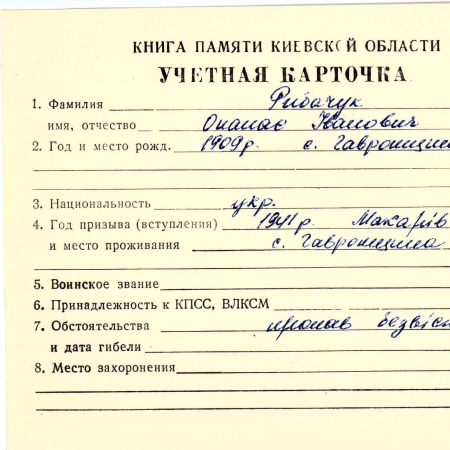 КНИГА ПАМЯТИ КИЕВСКОЙ ОБЛАСТИ
УЧЕТНАЯ КАРТОЧКА
1. Фамилия Рибачук
имя, отчество Опанас Іванович
2. Год и место рожд. 1909р. с. Гавронщина
3. Национальность укр.
4. Год призыва (вступления) 1941р. Макарів
и место проживания с. Гавронщина
5. Воинское звание
6. Принадлежность к КПСС, ВЛКСМ
7. Обстоятельства пропав безвіс
и дата гибели
8. Место захоронения